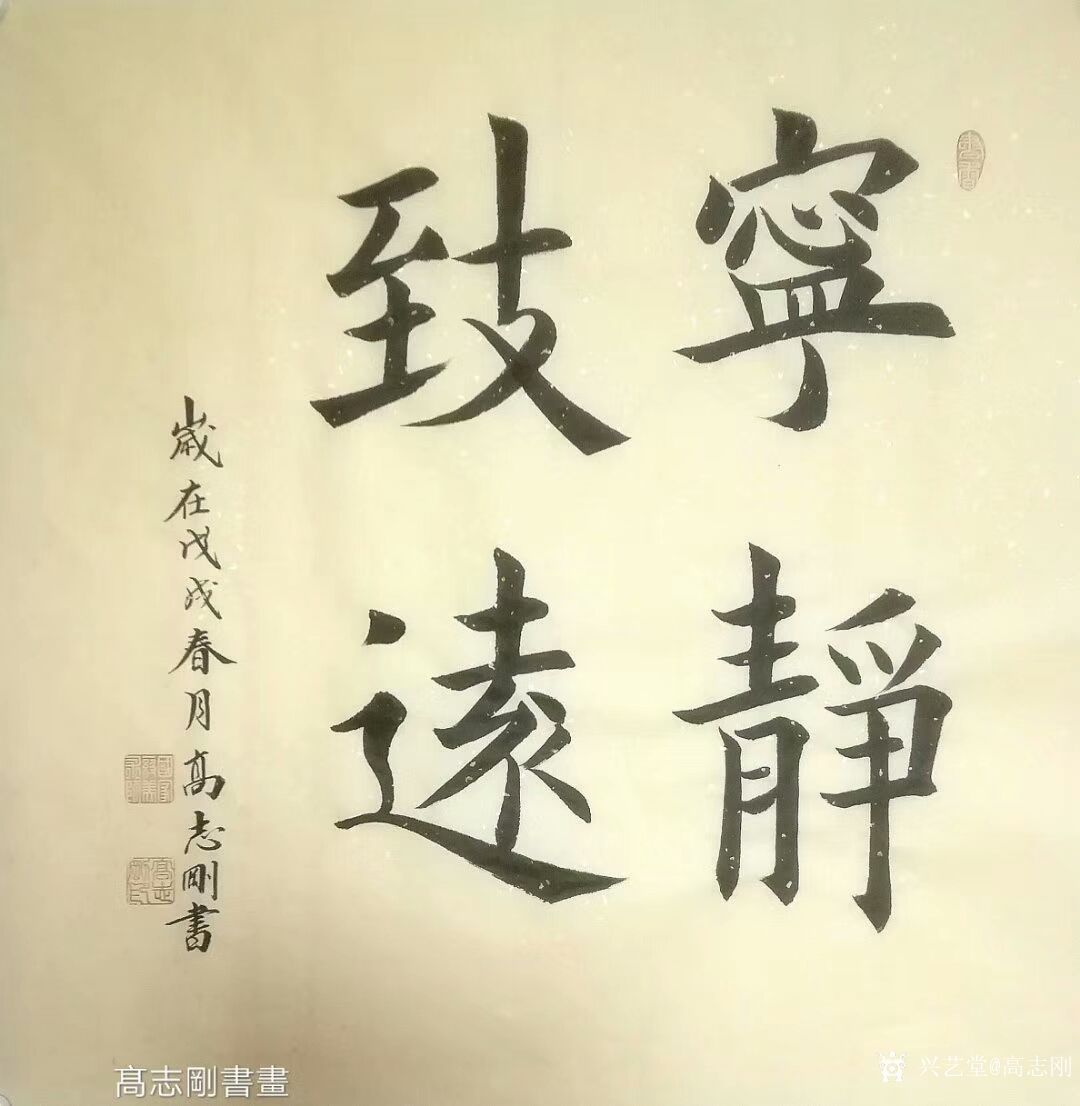 寧靜
致遠
歲在戊戌春月高志剛書
髙志剛書畫
兴艺堂@高志刚